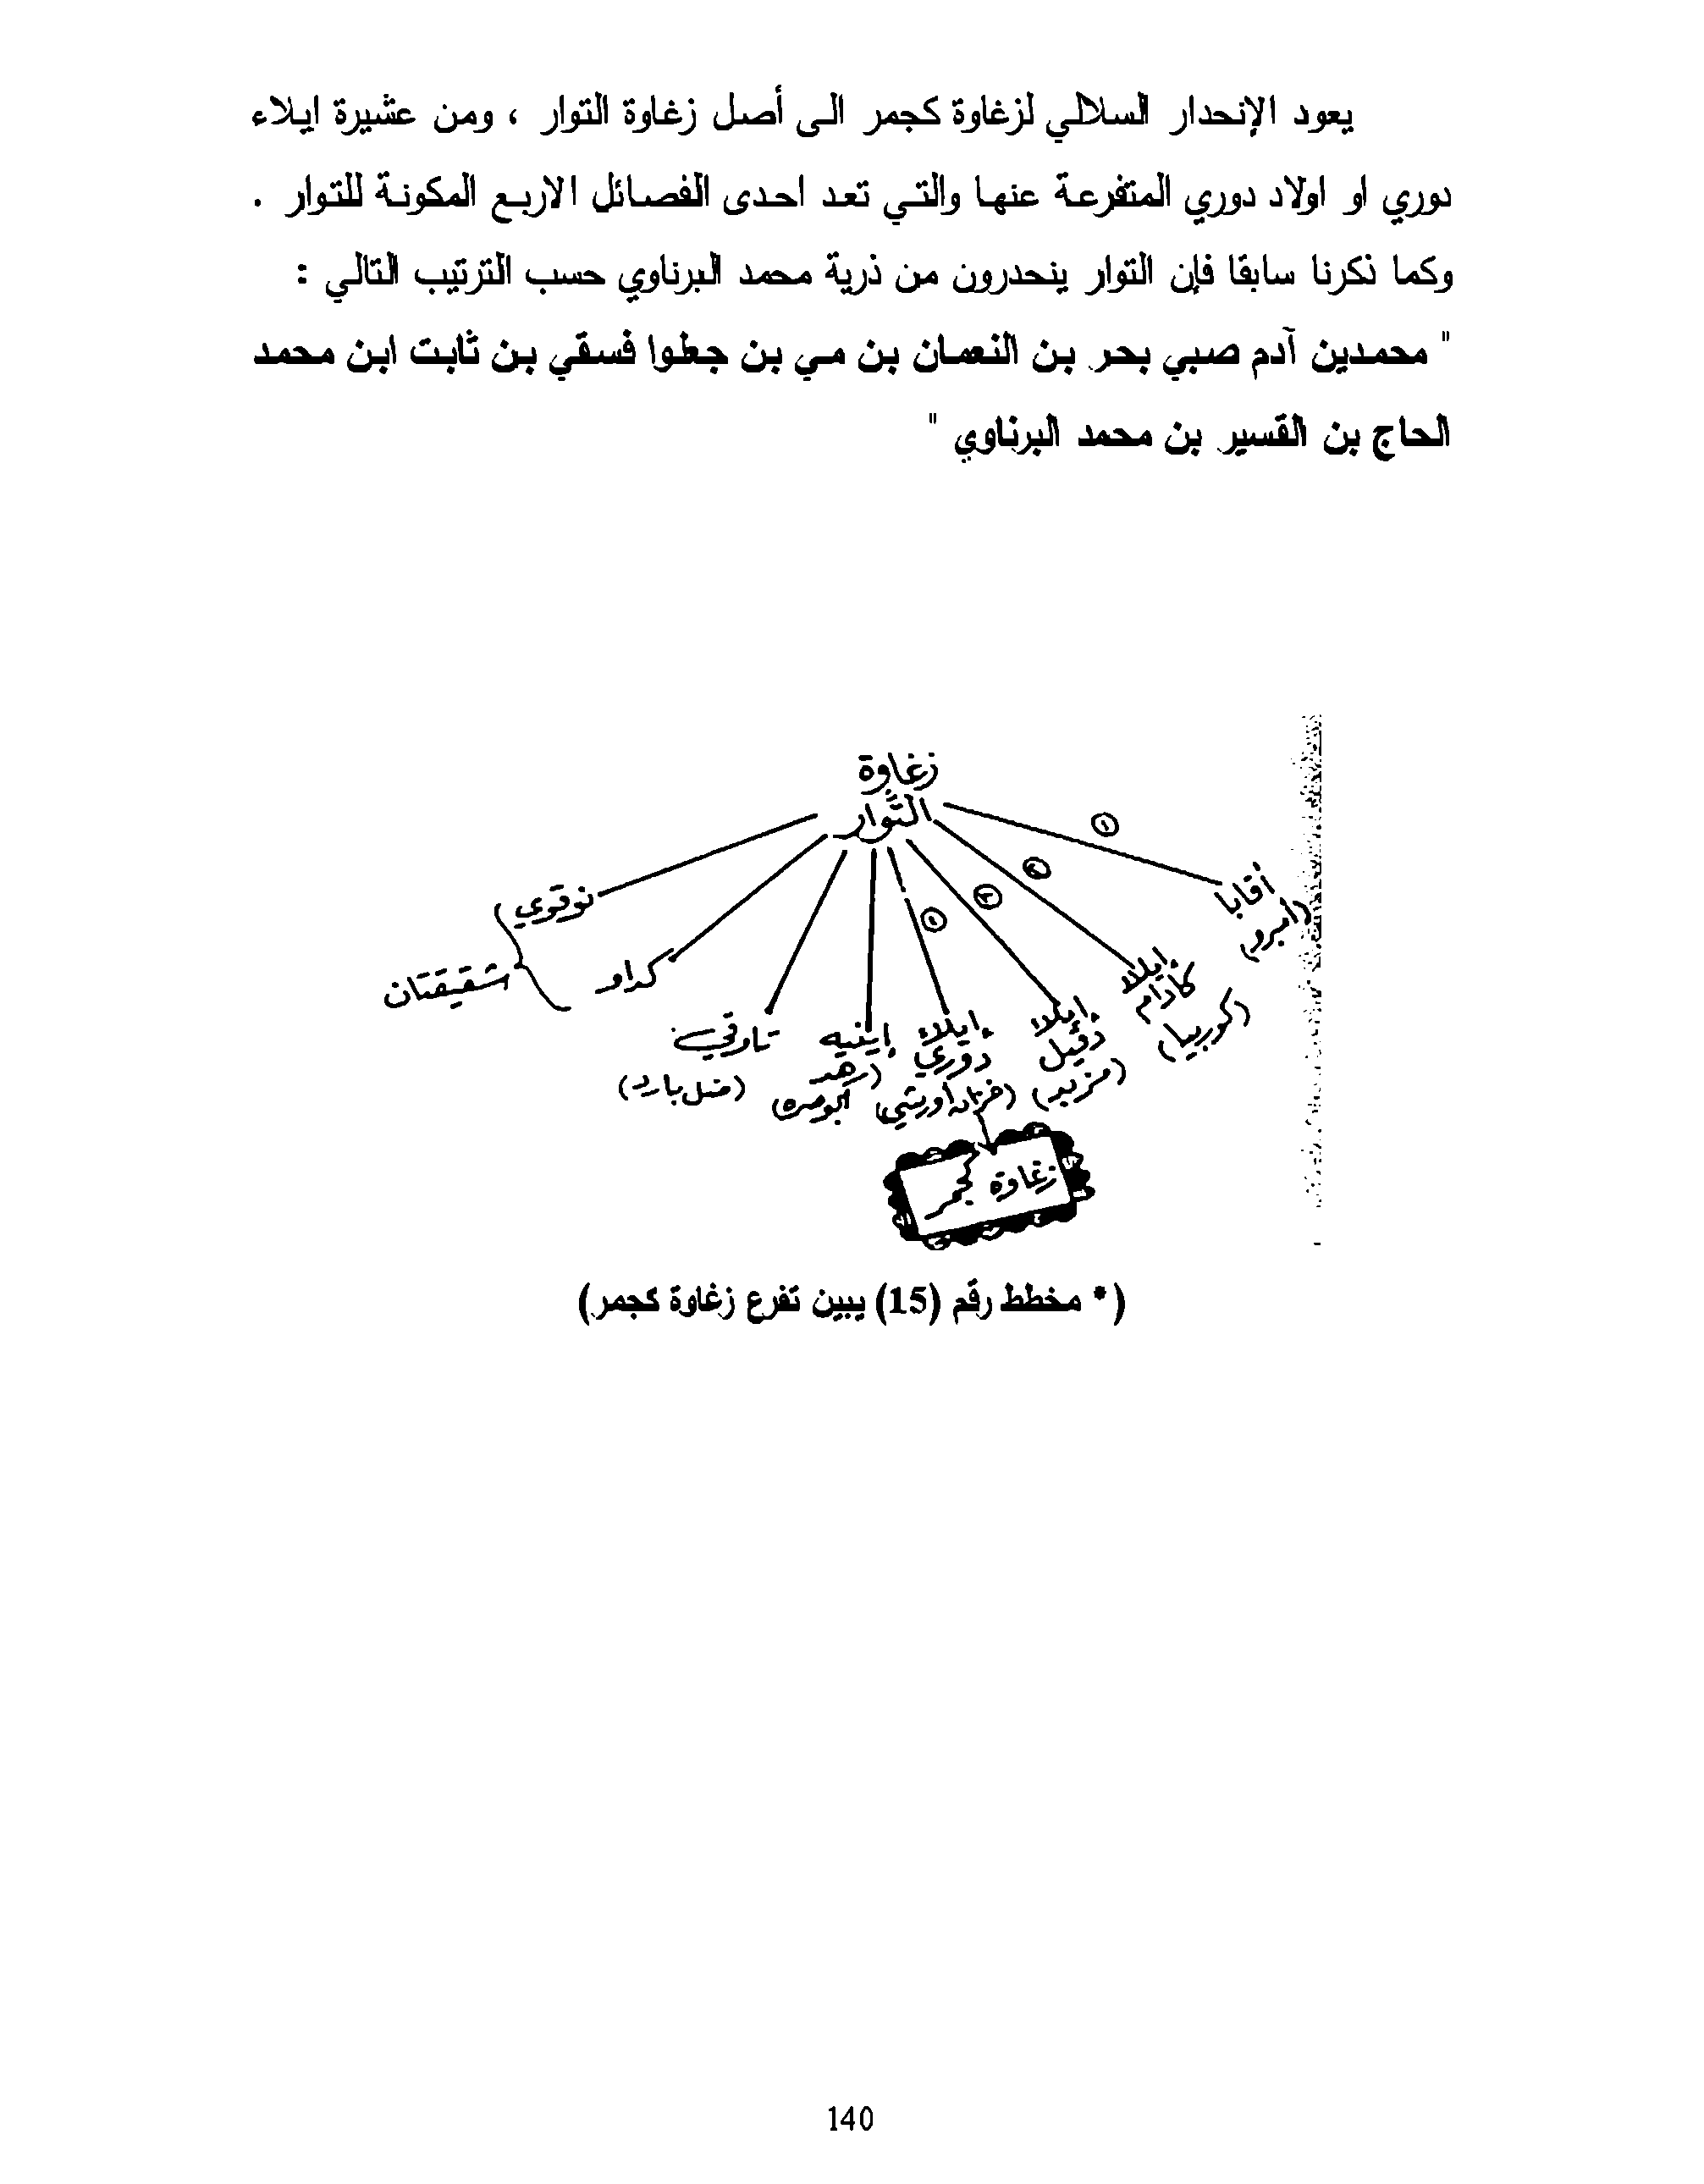 يعود الإنحدار السلالي لزغاوة كجمر الى أصل زغاوة التوار ، ومن عشيرة ايلاء
دوري او اولاد دوري المتفرعة عنها والتي تعد احدى الفصائل الاربع المكونة للتوار .
وكما ذكرنا سابقا فإن التوار ينحدرون من ذرية محمد البرناوي حسب الترتيب التالي :
" محمدين آدم صبي بحر بن النعمان بن مي بن جعلوا فسقي بن ثابت ابن محمد
الحاج بن القسير بن محمد البرناوي "
زغاوة
التوَّار
١
٢
٣
٤
أقابا
(أمبرو)
إيلاء
كادام
(كوربيا)
إيلاء
دقيل
(مزبد)
إيلاء
دوري
إينيه
(رهد
تاورقي
كداور
نوقوي
شقيقتان
زغاوة كجمر
(* مخطط رقم (15) يبين تفرع زغاوة كجمر)
140